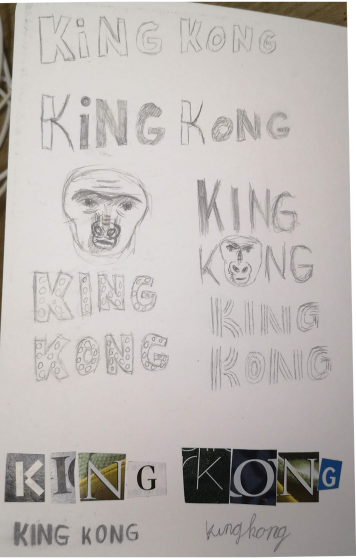 KiNG KONG
KiNG KoNG
KING
KONG
KING
KONG
KING
KONG
KING KONG
KING KONG
king kong